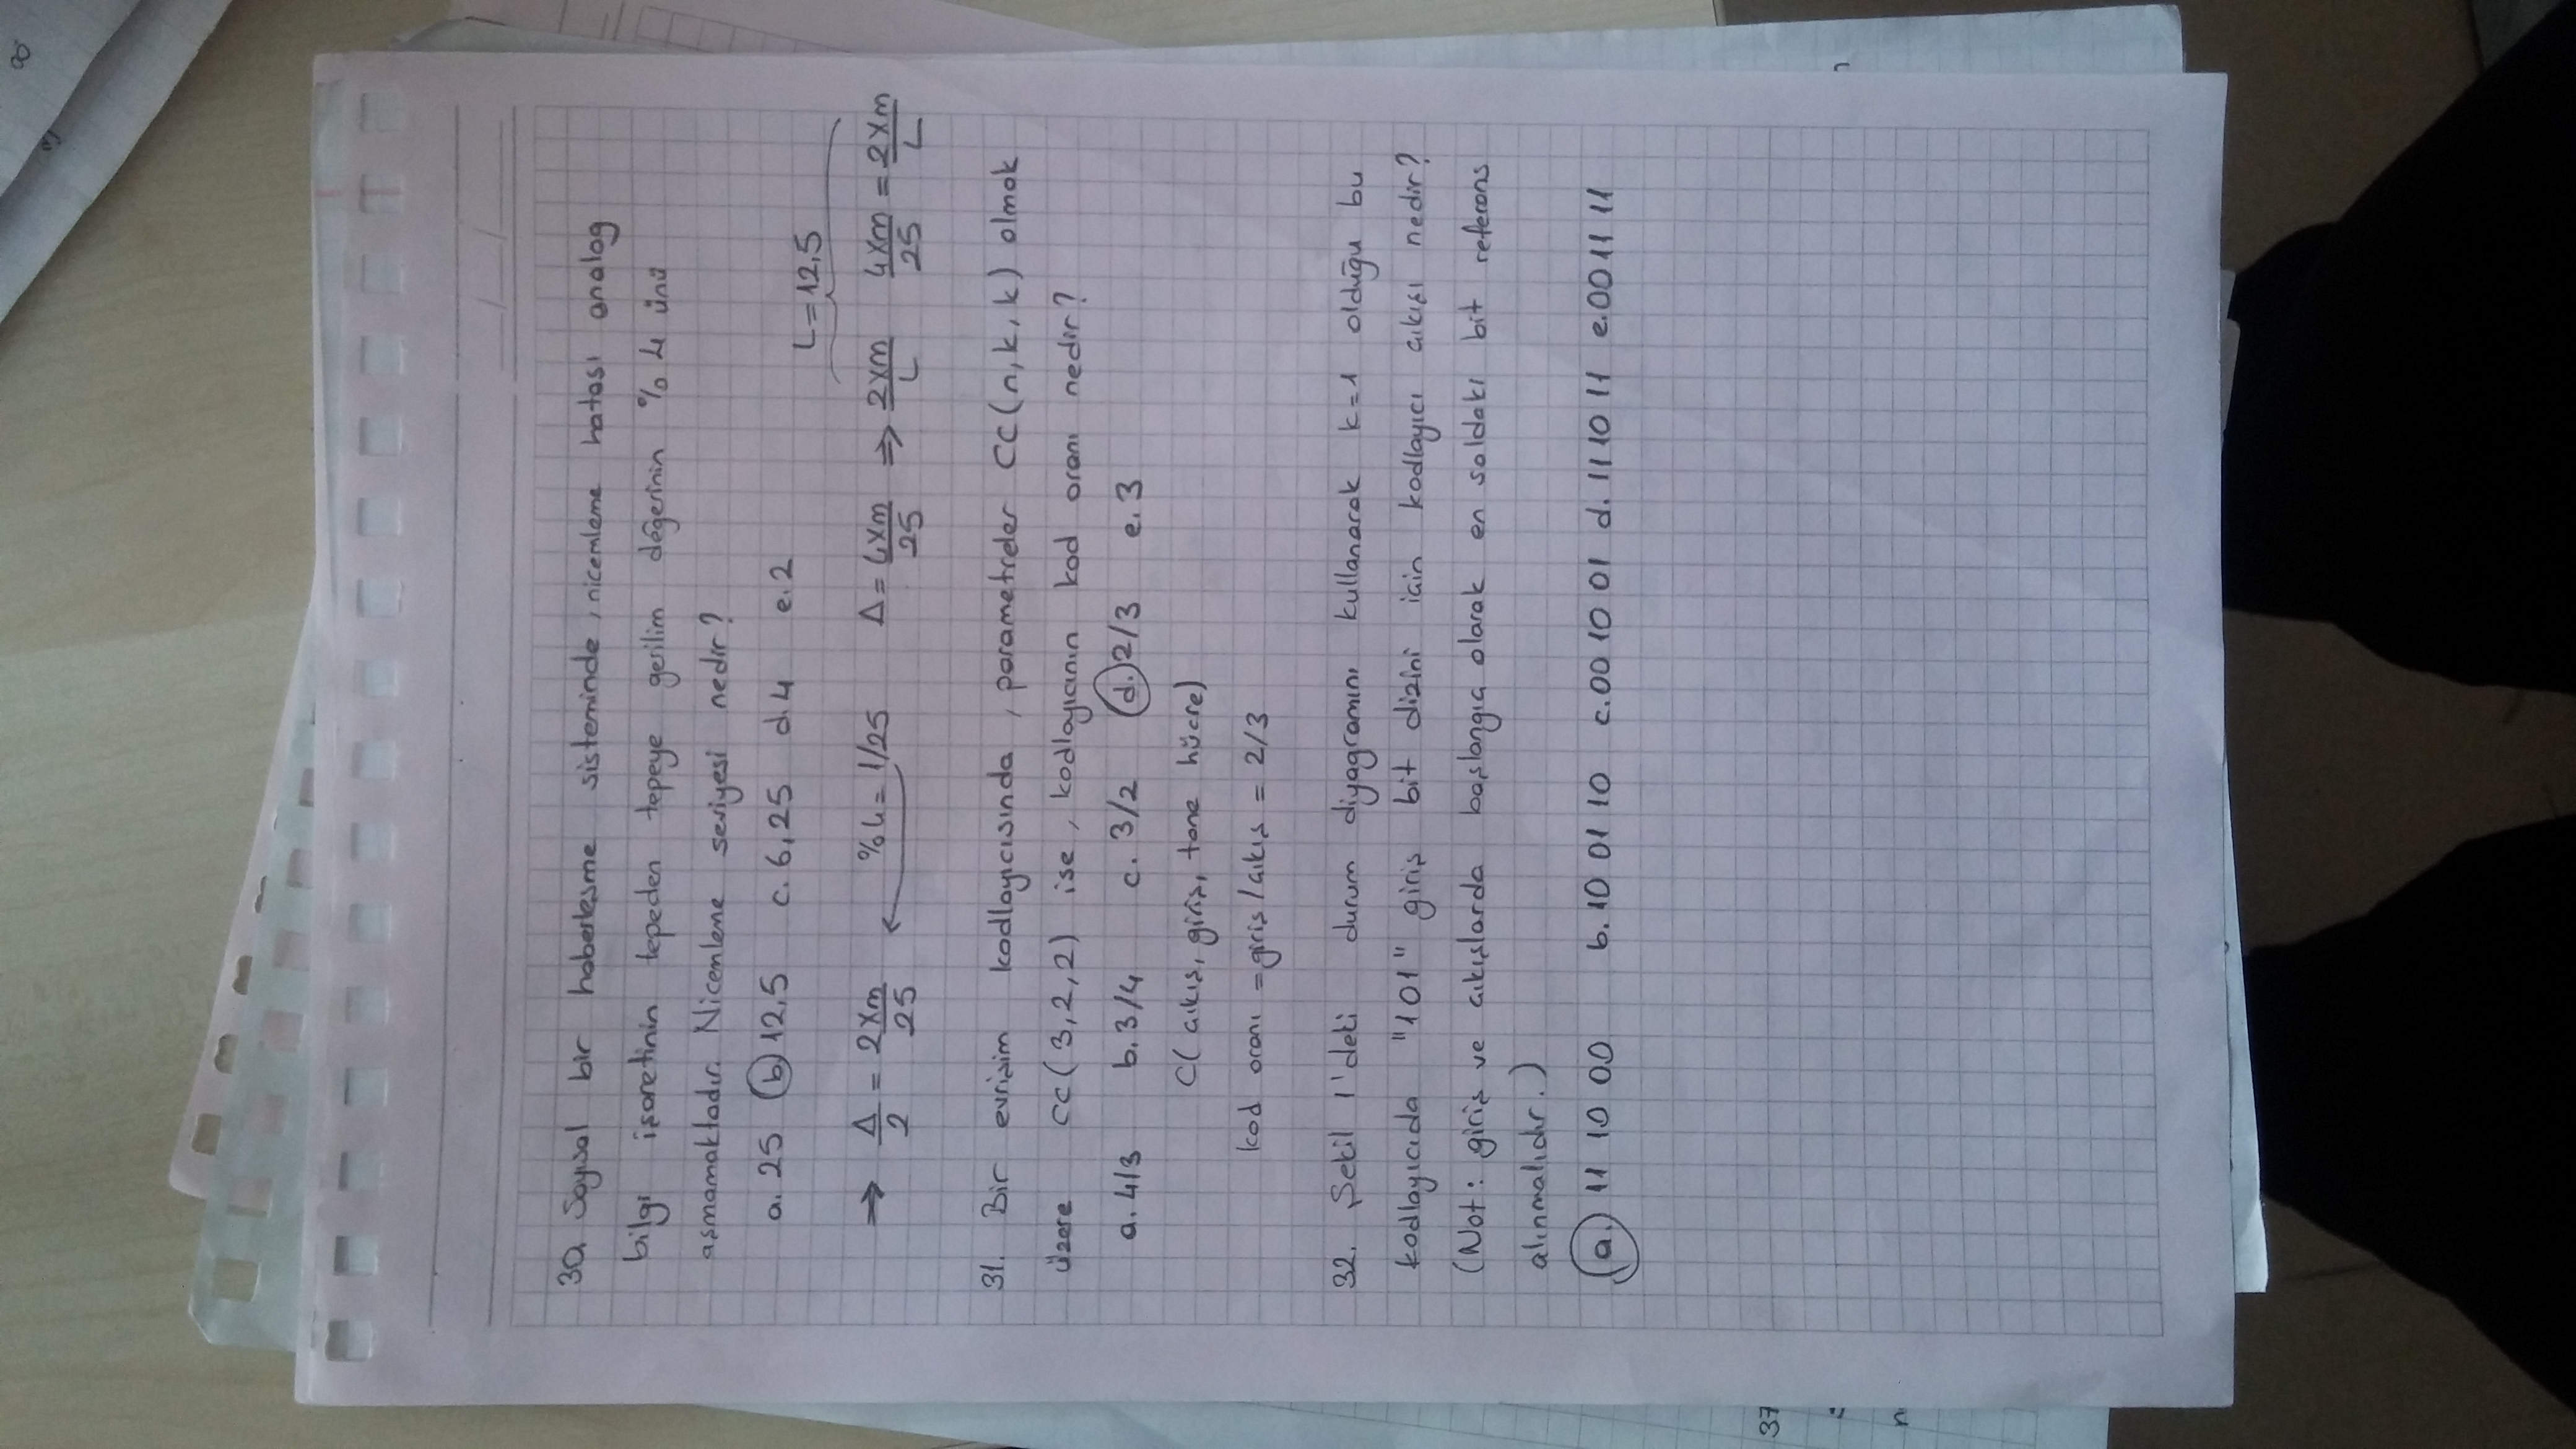 30. Sayısal bir haberleşme sisteminde, nicemleme hatası analog
bilgi işaretinin tepeden tepeye gerilim değerinin %4 ünü
aşmamaktadır. Nicemleme seviyesi nedir?
a. 25 b) 12,5 c. 6,25 d. 4 e. 2
L=12,5
⇒ Δ/2 = 2xm/25 %4 = 1/25 Δ = 4xm/25 ⇒ 2xm/L 4xm/25 = 2xm/L
31. Bir evrişim kodlayıcısında, parametreler CC(n,k,k) olmak
üzere CC(3,2,2) ise, kodlayıcının kod oranı nedir?
a. 4/3 b. 3/4 c. 3/2 d. 2/3 e. 3
C(çıkış, giriş, tane hücre)
kod oranı = giriş/çıkış = 2/3
32. Şekil 1'deki durum diyagramını kullanarak k=1 olduğu bu
kodlayıcıda "101" giriş bit dizini için kodlayıcı çıkışı nedir?
(Not: giriş ve çıkışlarda başlangıç olarak en soldaki bit referans
alınmalıdır.)
a. 11 10 00 b. 10 01 10 c. 00 10 01 d. 11 10 11 e. 00 11 11
37
n